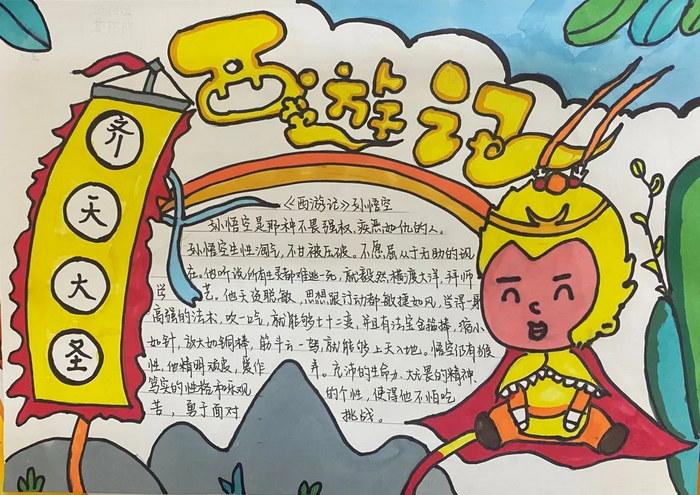 西游记
齐天大圣
《西游记》孙悟空
孙悟空是那种不畏强权、疾恶如仇的人。
孙悟空生性淘气，不甘被压迫，不愿屈从于无助的现
在。他听说所有生灵都难逃一死，就毅然横渡大洋，拜师
学艺。他天资聪敏，思想跟行动都敏捷如风，学得一身
高强的法术，吹一口气，就能够七十二变，并且有法宝金箍棒，缩小
如针，放大如铜棒，筋斗云一驾，就能够上天入地。悟空仍有猴
性，他精明顽皮，爱作弄。充沛的生命力、大无畏的精神、
笃定的性格和乐观的个性，使得他不怕吃
苦，勇于面对挑战。